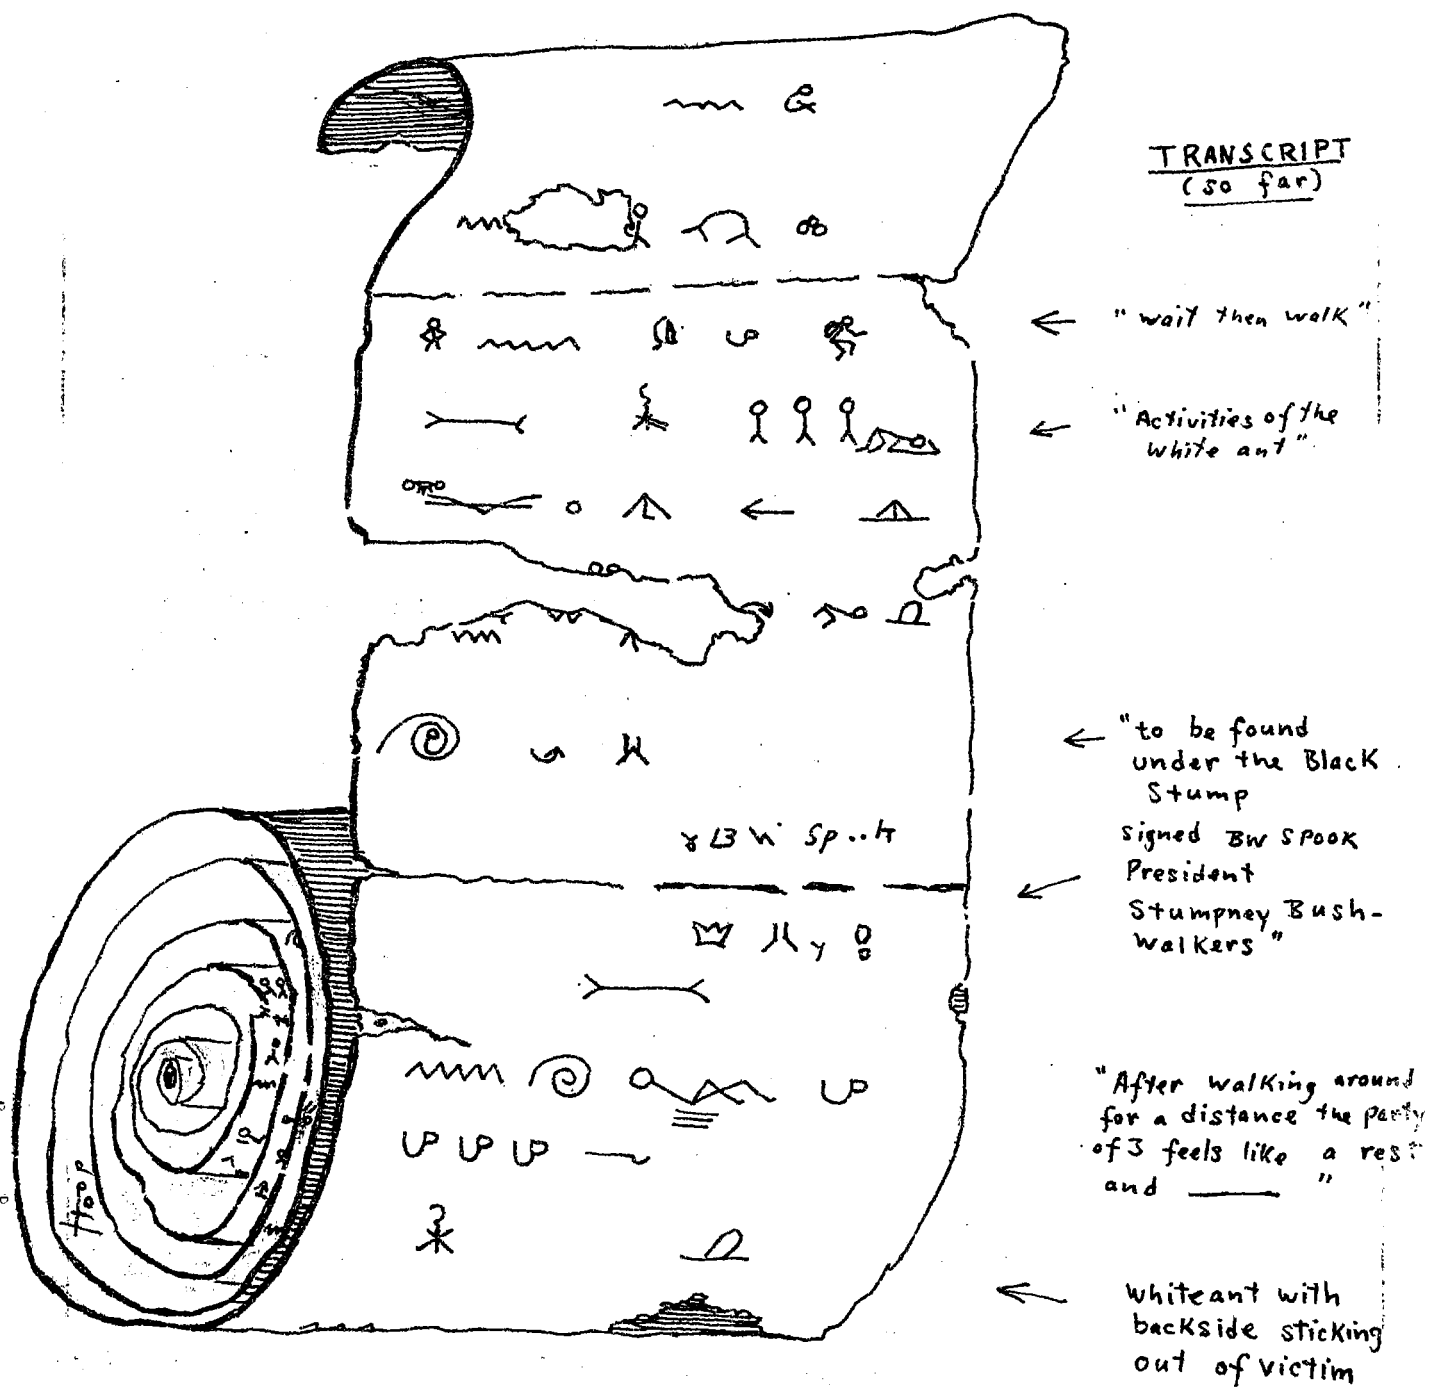 TRANSCRIPT
(so far)
"wait then walk"
"Activities of the
white ant"
"to be found
under the Black
Stump
signed BW SPOOK
President
Stumpney Bush-
walkers"
"After walking around
for a distance the party
of 3 feels like a rest
and ______ "
whiteant with
backside sticking
out of victim